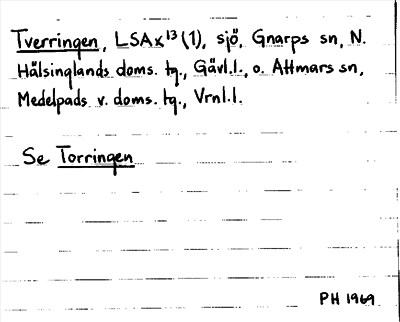 Tverringen, LSAx¹³(1), sjö, Gnarps sn, N.
Hälsinglands doms. tg., Gävl.l., o. Attmars sn,
Medelpads v. doms. tg., Vrnl.l.
Se Torringen
PH 1969